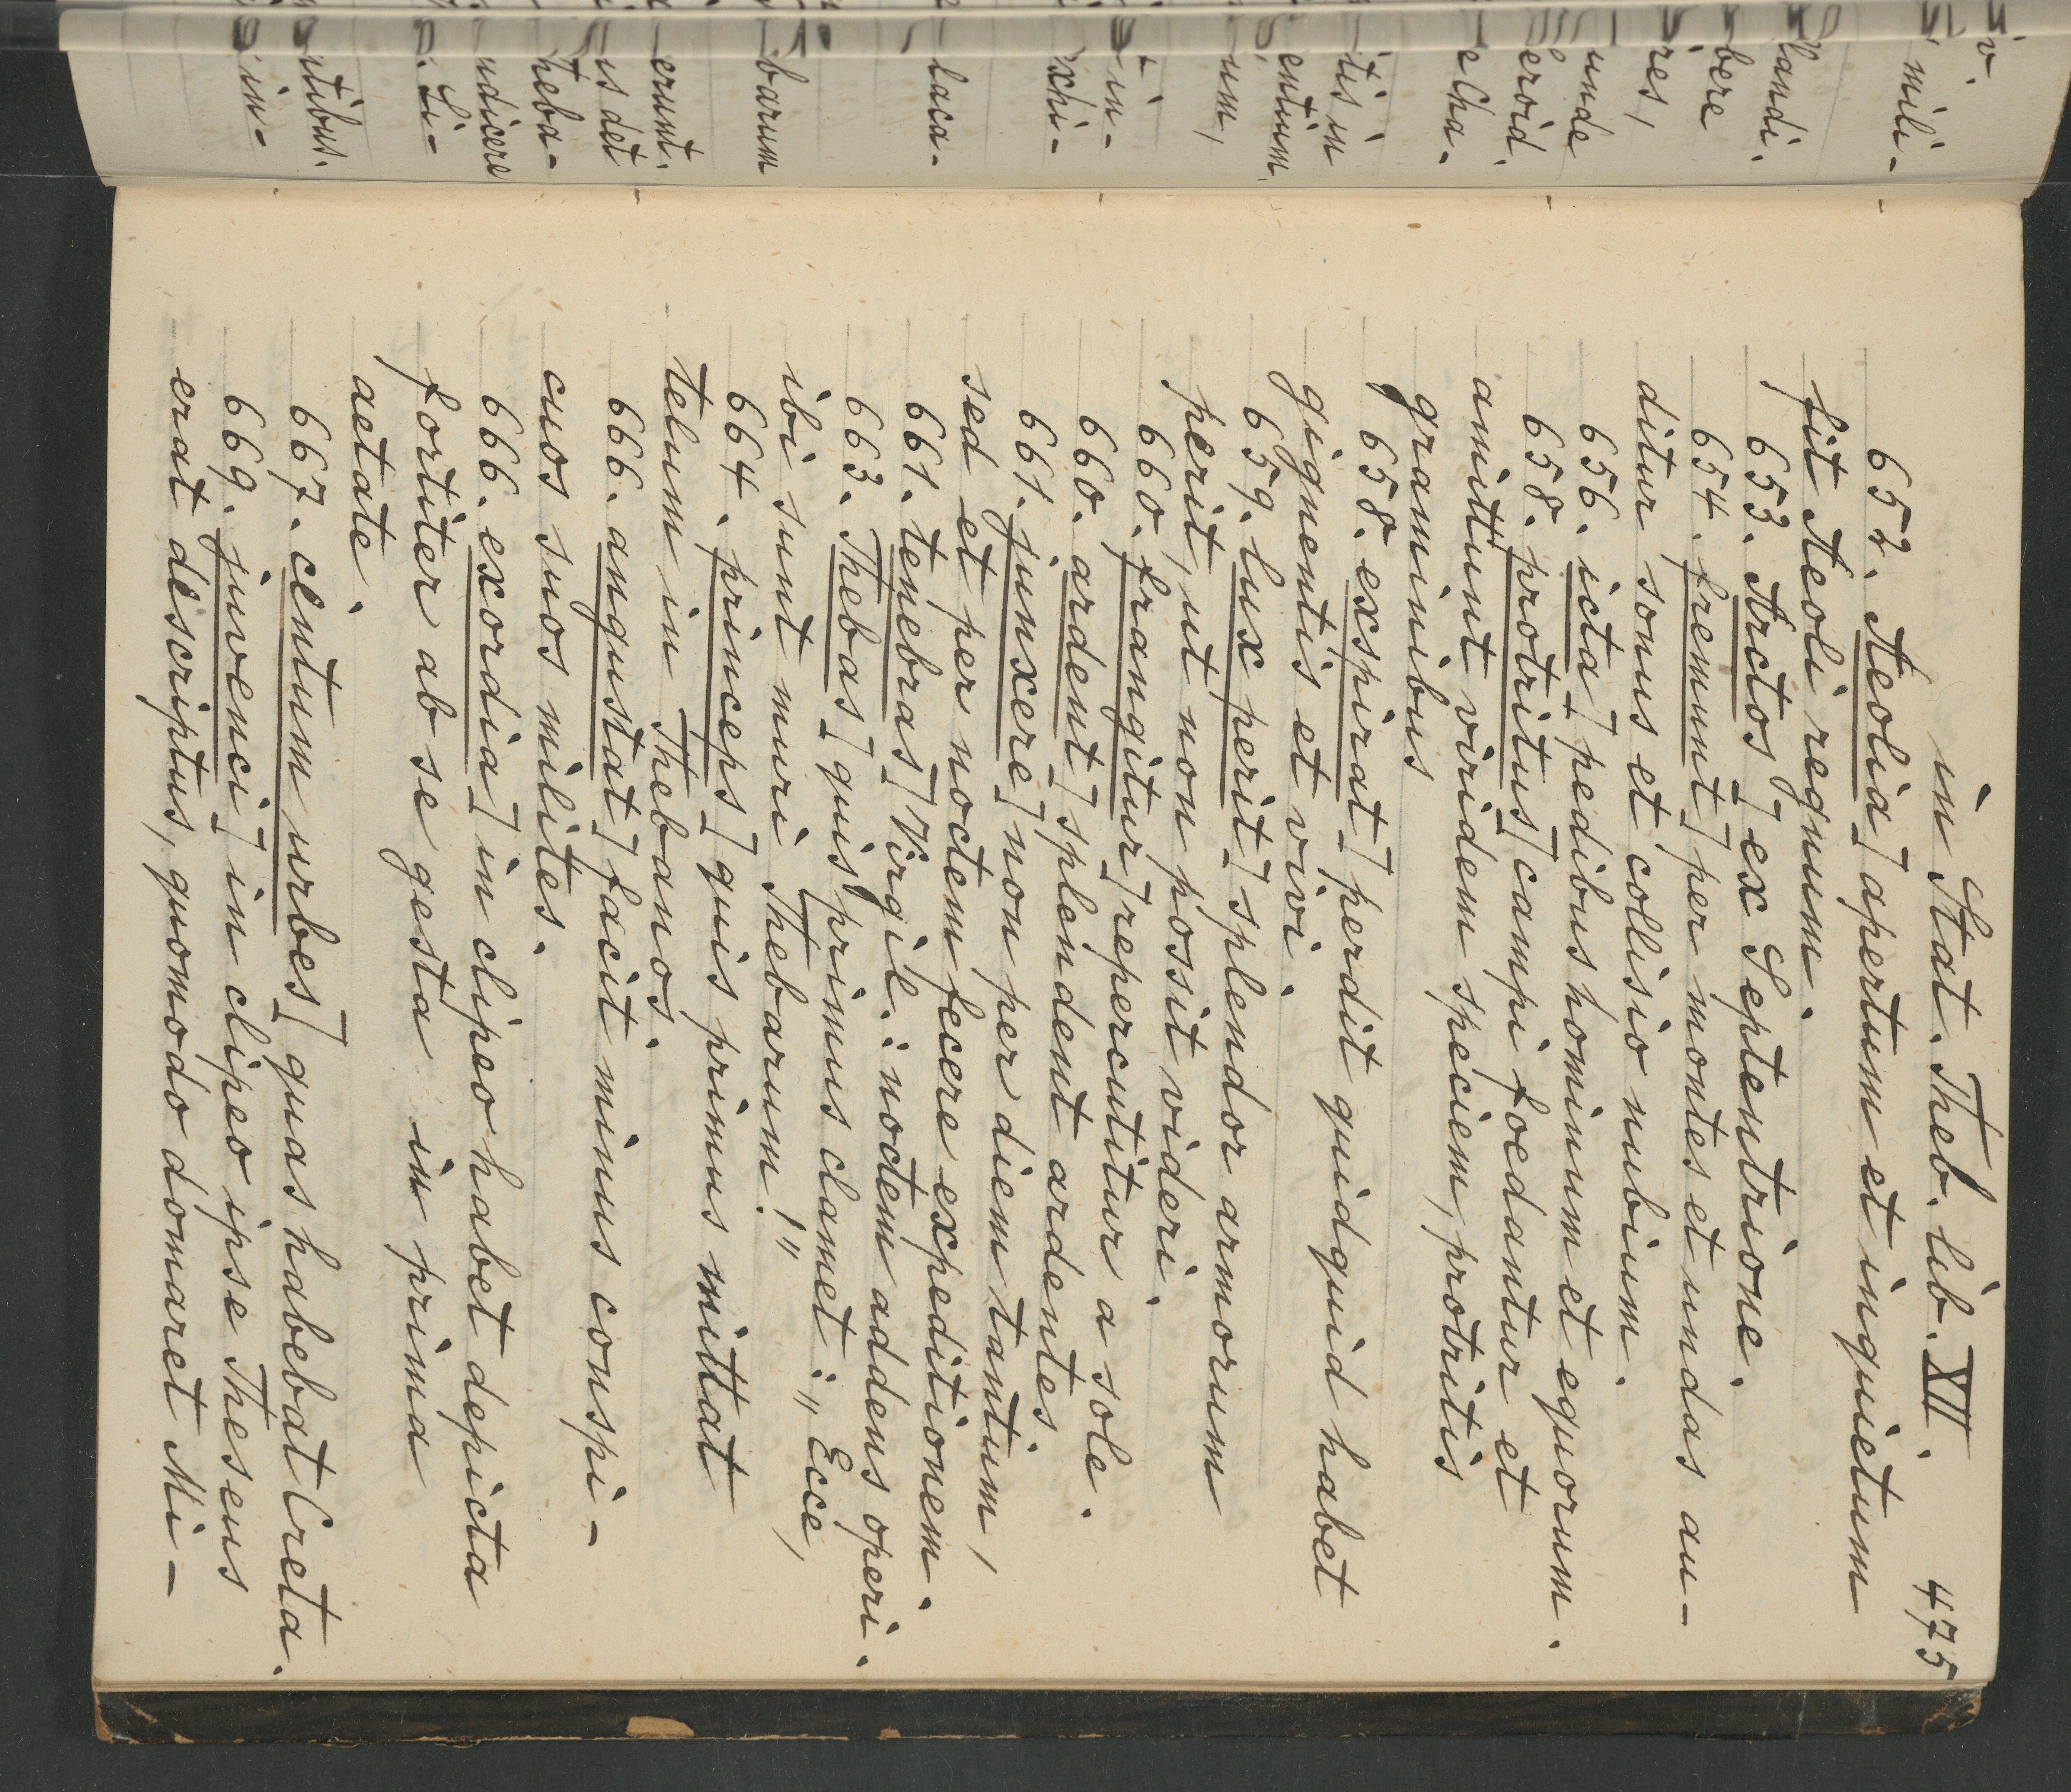 in Stat. Theb. lib. XII. 475
652. Aeolia] apertum et inquietum
fit Aeoli regnum.
653. Arctos] ex Septentrione.
654. fremunt] per montes et undas au-
ditur sonus et collisio nubium.
656. icta] pedibus hominum et equorum.
658. protritus] campi foedantur et
amittunt viridem speciem, protritis
graminibus
658. exspirat] perdit quidquid habet
gignentis et vivi.
659. lux perit] splendor armorum
perit, ut non possit videri.
660. frangitur] repercutitur a sole.
660. ardent] splendent ardentes
661. junxere] non per diem tantum,
sed et per noctem fecere expeditionem.
661. tenebras] Virgil.: noctem addens operi.
663. Thebas] quis primus clamet: „Ecce,
ibi sunt muri Thebarum!"
664. princeps] quis primus mittat
telum in Thebanos.
666. angustat] facit minus conspi-
cuos suos milites.
666. exordia] in clipeo habet depicta
fortiter ab se gesta in prima
aetate.
667. centum urbes] quas habebat Creta.
669. juvenci] in clipeo ipse Theseus
erat descriptus, quomodo domaret Mi-
v.
mili-
landi.
bere
res,
unde
eroid.
echa.
itis in
entium
um,
in-
xhi-
laca-
barum
erunt.
is det
heba-
udicere
Li-
ntibus.
in-